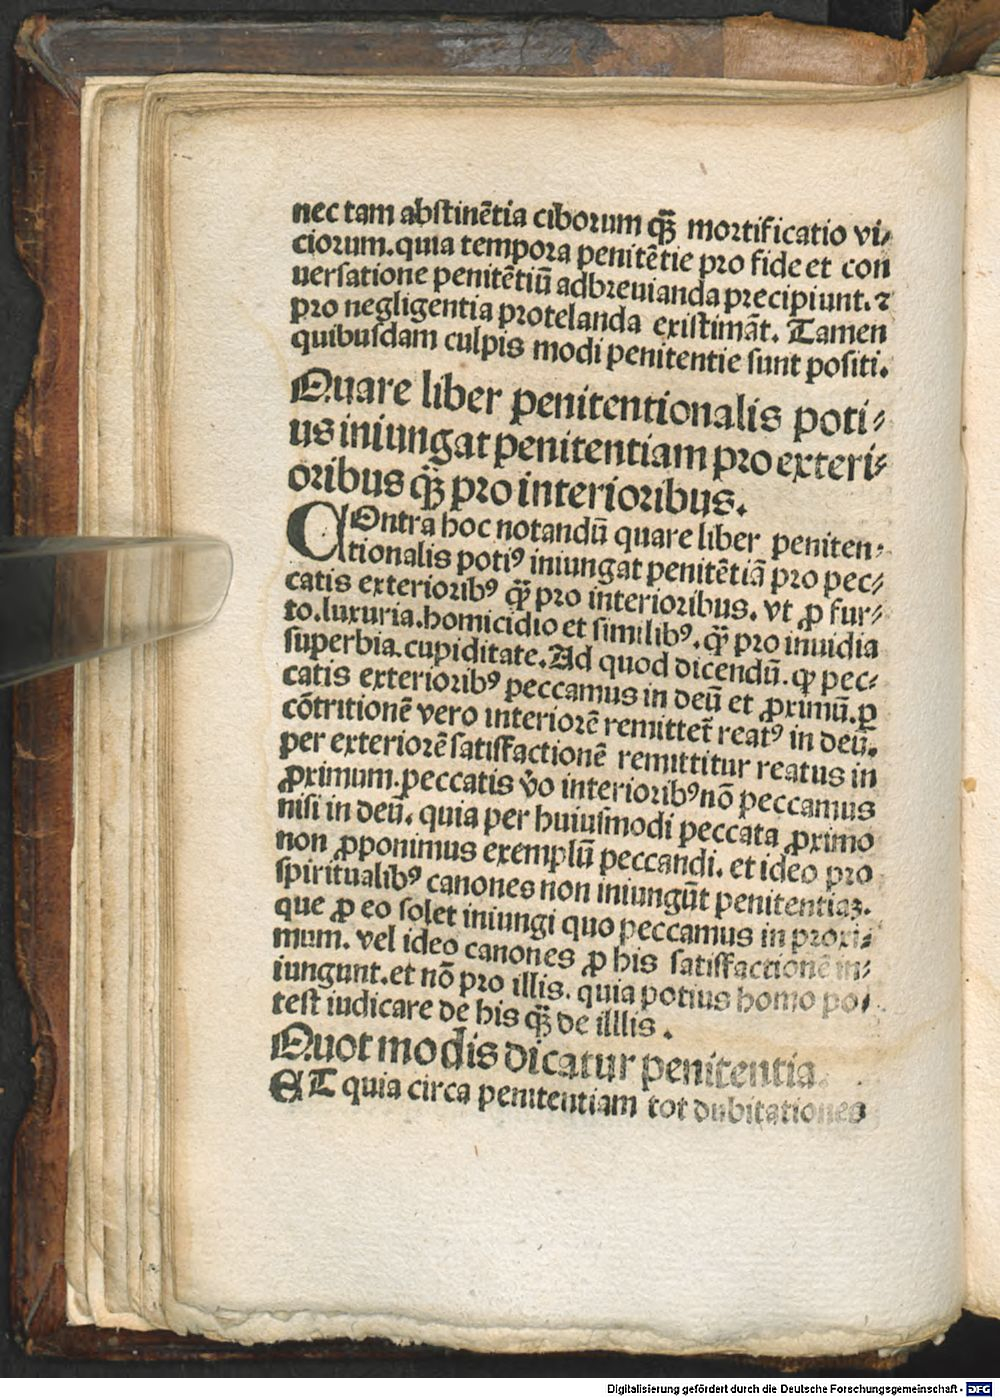 nec tam abstinētia ciborum qꝫ̄ mortificatio vi⸗
ciorum.quia tempora penitētie pro fide et con
uersatione penitētiū adbreuianda precipiunt.⁊
pro negligentia protelanda existimāt. Tamen
quibusdam culpis modi penitentie sunt positi.
Quare liber penitentionalis poti⸗
us iniungat penitentiam pro exteri⸗
oribus qꝫ̄ pro interioribus.
COntra hoc notandū quare liber peniten⸗
tionalis potiꝰ iniungat penitētiā pro pec⸗
catis exterioribꝰ qꝫ̄ pro interioribus. vt ꝓ fur⸗
to.luxuria.homicidio et similibꝰ.qꝫ̄ pro inuidia
superbia.cupiditate.Ad quod dicendū.ꝙ pec⸗
catis exterioribꝰ peccamus in deū et ꝓximū.ꝑ
cōtritionē vero interiorē remittet̄ reatꝰ in deū.
per exteriorē satisfactionē remittitur reatus in
ꝓximum.peccatis v̄o interioribꝰ nō peccamus
nisi in deū. quia per huiusmodi peccata ꝓximo
non ꝓponimus exemplū peccandi. et ideo pro
spiritualibꝰ canones non iniungūt penitentiaꝫ.
que ꝓ eo solet iniungi quo peccamus in proxi⸗
mum. vel ideo canones ꝓ his satisfactionē in⸗
iungunt.et nō pro illis. quia potius homo po⸗
test iudicare de his qꝫ̄ de illlis.
Quot modis dicatur penitentia.
ET quia circa penitentiam tot dubitationes
Digitalisierung gefördert durch die Deutsche Forschungsgemeinschaft - DFG